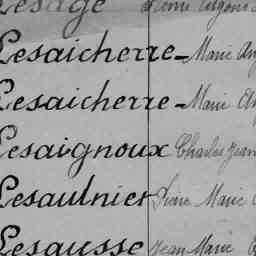 Lesage Pierre
Lesaicherre - Marie Ang
Lesaicherre - Marie An
Lesaignoux Charles Jean
Lesaulnier Pierre Marie
Lesausse Jean Marie